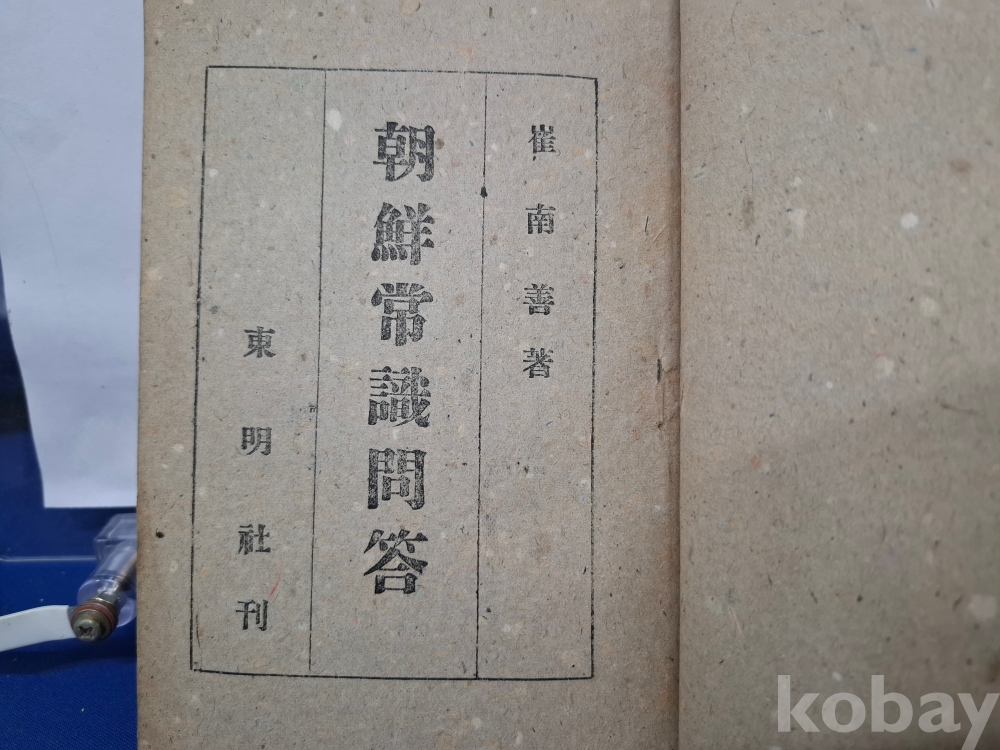 崔南善著
朝鮮常識問答
東明社刊
kobay